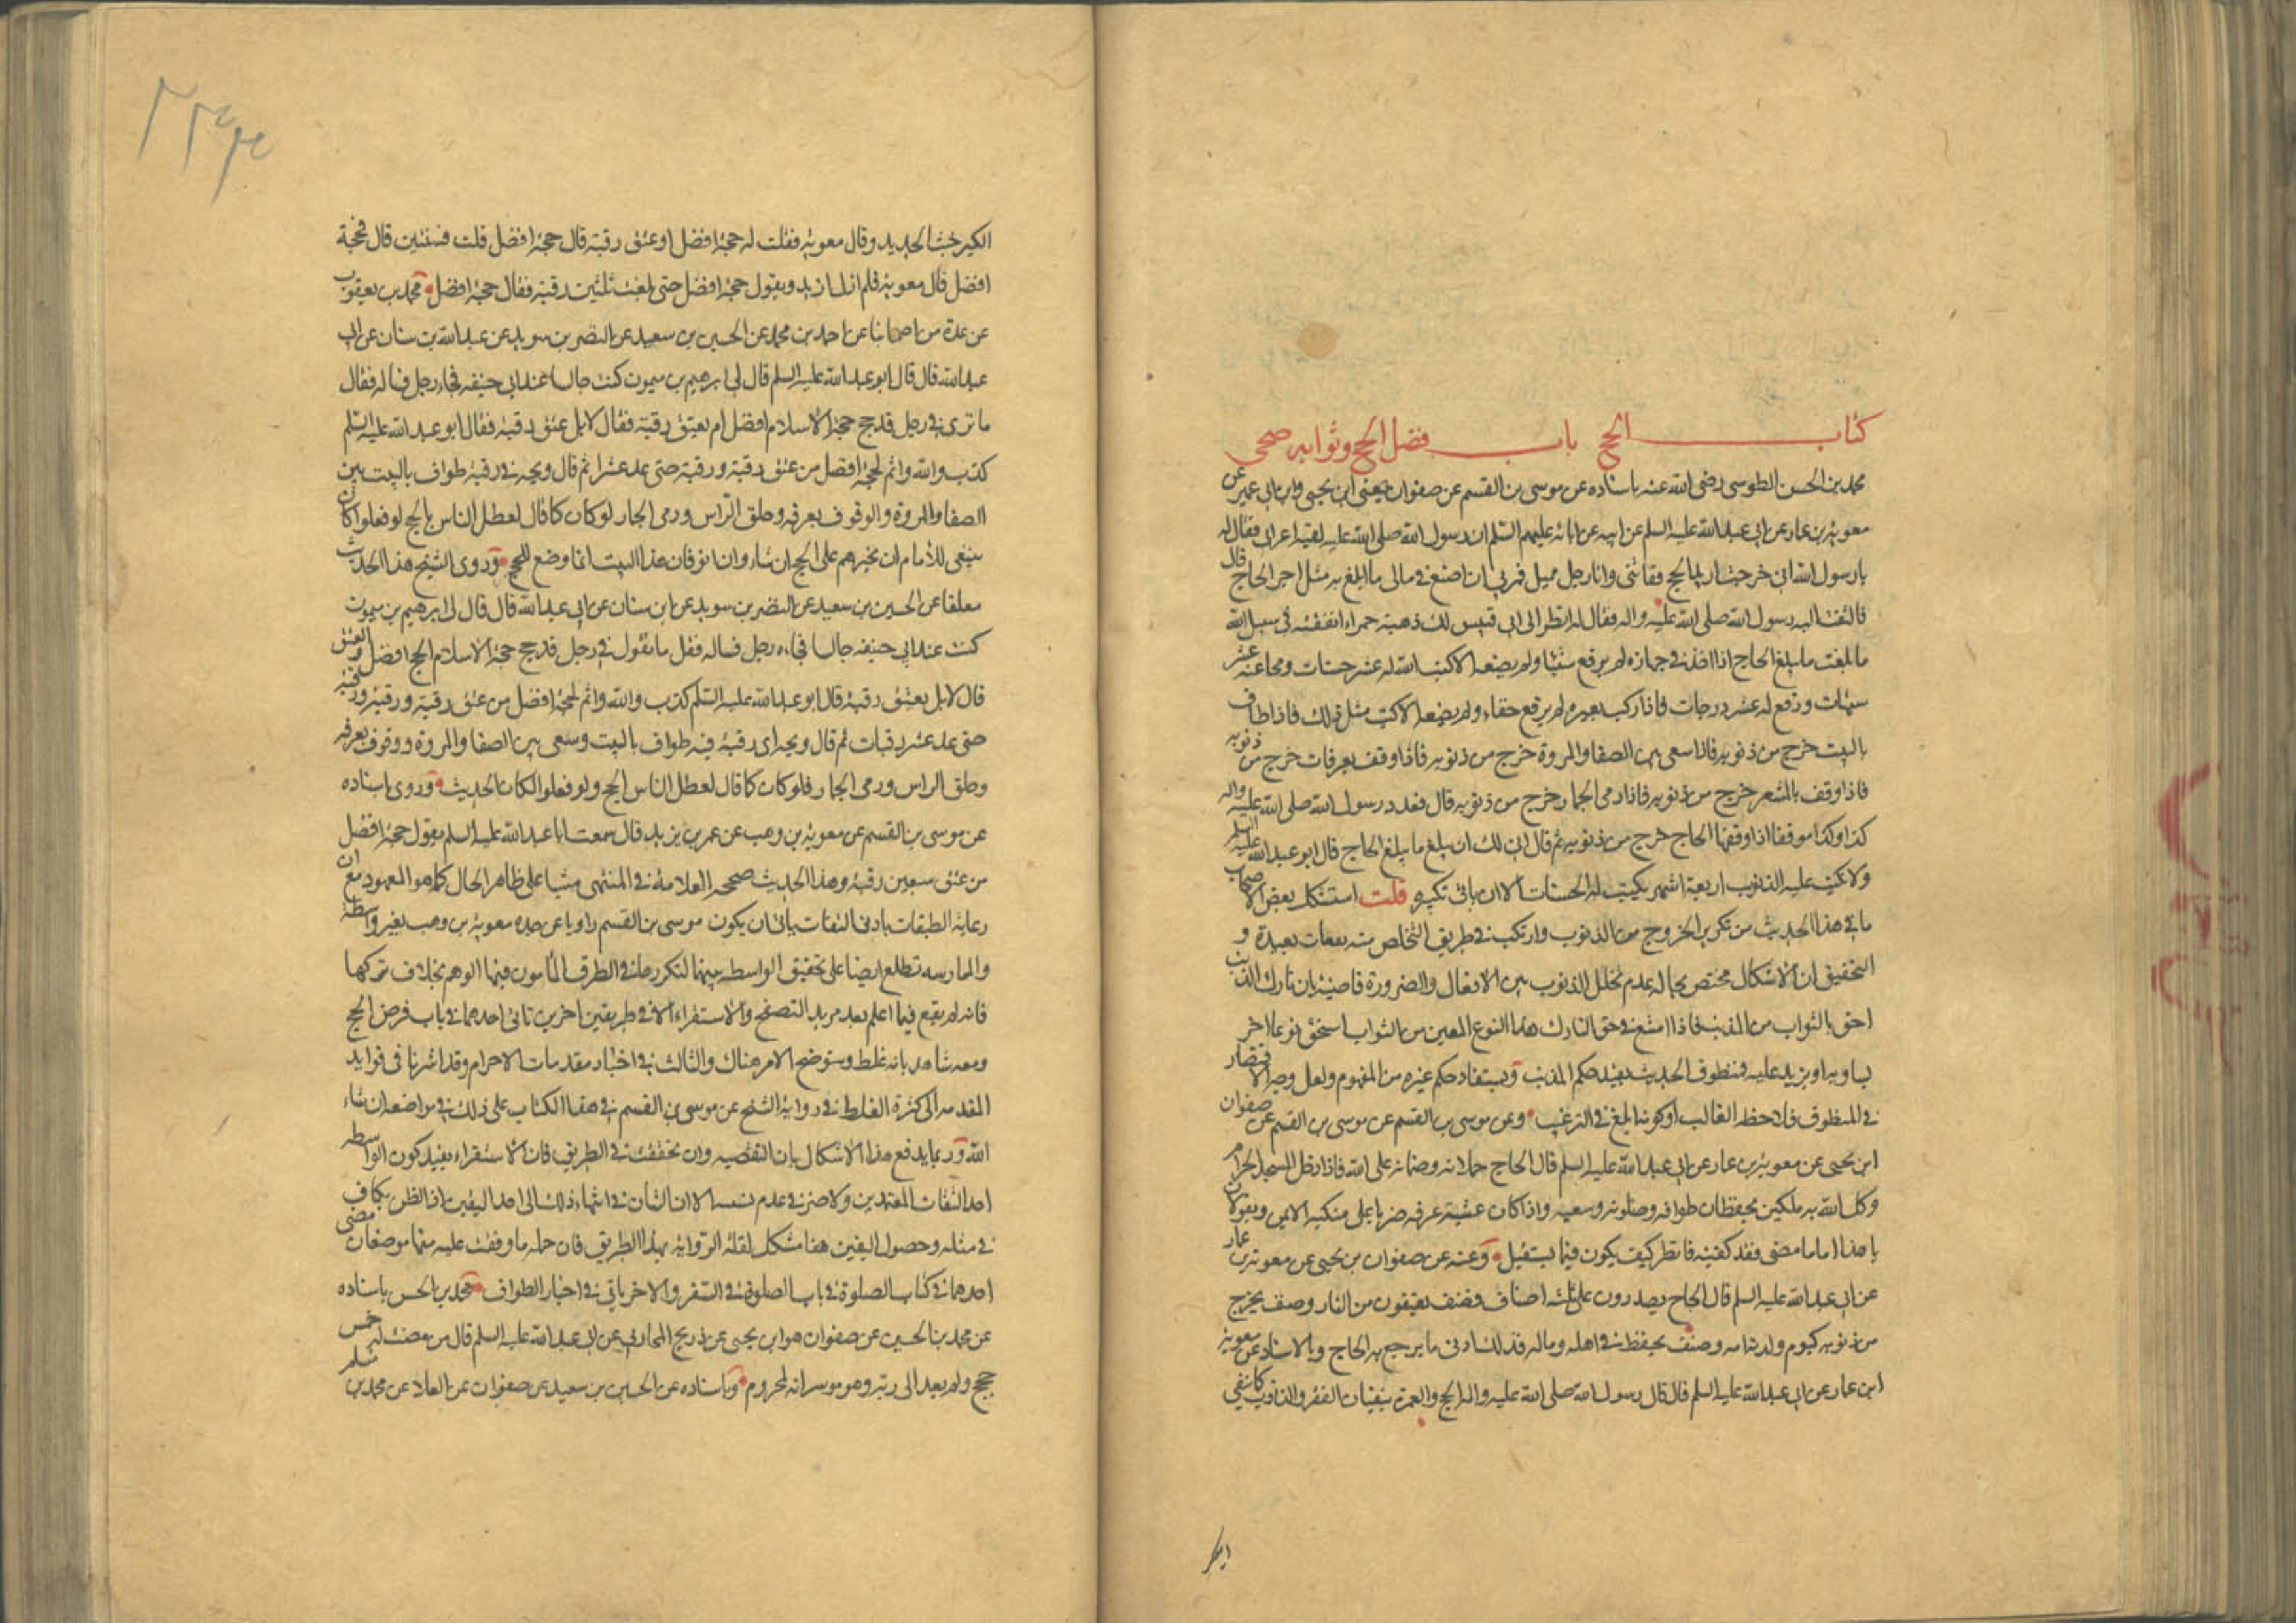 كتاب الحج باب فضل الحج وثوابه صحي
محمد بن الحسن الطوسي رضى الله عنه باسناده عن موسى بن القسم عن صفوان يعنى ابن يحيى وابن ابى عمير عن
معوية بن عمار عن ابى عبد الله عليه السلم عن ابيه عن ابائه عليهم السلم ان رسول الله صلى الله عليه لقيه اعرابى فقال له
يا رسول الله انى خرجت اريد الحج ففاتنى وانا رجل مميل فمرنى ان اصنع فى مالى ما ابلغ به مثل اجر الحاج قال
فالتفت اليه رسول الله صلى الله عليه واله فقال له انظر الى ابى قبيس لك ذهبة حمراء انفقته فى سبيل الله
ما بلغت ما يبلغ الحاج اذا اخذ فى جهازه لم يرفع شيئا ولم يضعه الا كتب الله له عشر حسنات ومحا عنه عشر
سيئات ورفع له عشر درجات فاذا ركب بعيره لم يرفع خفاء ولم يضعه الا كتب مثل ذلك فاذا طاف
بالبيت خرج من ذنوبه فاذا سعى بين الصفا والمروة خرج من ذنوبه فاذا وقف بعرفات خرج من ذنوبه
فاذا وقف بالمشعر خرج من ذنوبه فاذا رمى الجمار خرج من ذنوبه قال فعدد رسول الله صلى الله عليه واله
كذا وكذا موقفا اذا وقفها الحاج خرج من ذنوبه ثم قال انى لك ان يبلغ ما يبلغ الحاج قال ابو عبد الله عليه السلم
ولا تكتب عليه الذنوب اربعة اشهر يكتب له الحسنات الا ان ياتى بكبيرة قلت استشكل بعض الاصحاب
ما فى هذا الحديث من تكرير الخروج من الذنوب وارتكب فى طريق التخلص منه بعيدة و
التحقيق ان الاشكال مختص بحالة عدم تخلل الذنوب بين الافعال والضرورة قاضية بان تارك الذنب
احق بالثواب من المذنب فاذا امتنع فى حق التارك هذا النوع المعين من الثواب استحق نوعا اخر
يساويه او يزيد عليه فمنطوق الحديث يفيد حكم المذنب ويستفاد حكم غيره من المفهوم ولعل وجه الاقتصار
فى المنطوق الغالب او كونه ابلغ فى الترغيب وعن موسى بن القسم عن موسى بن القسم عن صفوان
ابن يحيى عن معوية بن عمار عن ابى عبد الله عليه السلم قال الحاج حملانه وضمانه على الله فاذا دخل المسجد الحرام
وكل الله به ملكين يحفظان طوافه وصلوته وسعيه واذا كان عشية عرفه ضربا على منكبه الايمن ويقولان
يا هذا اما ما مضى فقد كفيته فانظر كيف يكون فيما يستقبل وعنه عن صفوان بن يحيى عن معوية بن عمار
عن ابى عبد الله عليه السلم قال الحاج يصدرون على ثلثة اصناف فصنف يعتقون من النار وصنف يخرج
من ذنوبه كيوم ولدته امه وصنف يحفظ فى اهله وماله فذلك ادنى ما يرجع به الحاج وبالاسناد عن معوية
ابن عمار عن ابى عبد الله عليه السلم قال قال رسول الله صلى الله عليه واله الحج والعمرة ينفيان الفقر والذنوب كما ينفى
الكير
الكير خبث الحديد وقال معوية فقلت له حجة افضل او عتق رقبة قال حجة افضل قلت فثنتين قال فحجة
افضل قال معوية فلم ازل ازيد ويقول حجة افضل حتى بلغت ثلثين رقبة فقال حجة افضل محمد بن يعقوب
عن عدة من اصحابنا عن احمد بن محمد عن الحسين بن سعيد عن النضر بن سويد عن عبد الله بن سنان عن ابى
عبد الله قال قال ابو عبد الله عليه السلم قال لى ابرهيم بن ميمون كنت جالسا عند ابى حنيفه فجاءه رجل فساله فقال
ما ترى فى رجل قد حج حجة الاسلام افضل ام يعتق رقبة فقال لا بل عتق رقبة فقال ابو عبد الله عليه السلم
كذب والله واثم لحجة افضل من عتق رقبة ورقبة ورقبة حتى عد عشرا ثم قال ويحه فى رقبة طواف بالبيت بين
الصفا والمروة والوقوف بعرفه وحلق الراس ورمى الجمار لو كان كما قال لعطل الناس الحج لو فعلوا كان
ينبغى للامام ان يجبرهم على الحج ان شاءوا وان ابو فان هذا البيت انما وضع للحج وروى الشيخ هذا الحديث
معلقا عن الحسين بن سعيد عن النضر بن سويد عن ابن سنان عن ابى عبد الله قال قال لى ابرهيم بن ميمون
كنت عند ابى حنيفه جالسا فجاءه رجل فساله فقل ما تقول فى رجل قد حج حجة الاسلام الحج افضل او العتق
قال لا بل يعتق رقبة قال ابو عبد الله عليه السلم كذب والله واثم لحجة افضل من عتق رقبة ورقبة ورقبة
حتى عد عشر رقبات ثم قال ويحه اى رقبة فيه طواف بالبيت وسعى بين الصفا والمروة ووقوف بعرفه
وحلق الراس ورمى الجمار فلو كان كما قال لعطل الناس الحج ولو فعلوا لكان الحديث وروى باسناده
عن موسى بن القسم عن معوية بن وهب عن عمر بن يزيد قال سمعت ابا عبد الله عليه السلم يقول حجة افضل
من عتق سبعين رقبة وهذا الحديث صححه العلامة فى المنتهى مشيا على ظاهر الحال كما هو المعهود مع ان
رعاية الطبقات بادنى التفات يابى ان يكون موسى بن القسم راويا عن جده معوية بن وهب بغير واسطة
والممارسه تطلع ايضا على تحقيق الواسطه بينهما لتكررها فى الطرق المامون فيها الوهم بخلاف تركها
فانه لم يقع فيما اعلم بعد مزيد التصفح والاستقراء الا فى طريقين اخرين ياتى احدهما فى باب فرض الحج
ومعه شاهد بانه غلط وسنوضح الامر هناك والثالث فى اخبار مقدمات الاحرام وقد اشرنا فى فوايد
المقدمه الى كثرة الغلط فى رواية الشيخ عن موسى بن القسم فى هذا الكتاب على ذلك فى مواضعه ان شاء
الله وربما يدفع هذا الاشكال بان النقصيه وان تحققت فى الطريق فان الاستقراء يفيد كون الواسطه
احد الثقات المعتمدين ولا ضير فى عدم الا ان الشان فى انتهاء ذلك الى احد اليقين اذ الظن بكاف
فى مثله وحصول اليقين هنا مشكل لقلة الرواية بهذا الطريق فان جمله ما وقفت عليه منها موضعان مضى
احدهما فى كتاب الصلوة فى باب الصلوة فى السفر والاخر ياتى فى اخبار الطواف محمد بن الحسن باسناده
عن محمد بن الحسين عن صفوان هو ابن يحيى عن ذريح المحاربى عن ابى عبد الله عليه السلم قال من مضت له خمس
حجج ولم يعد الى ربه وهو موسر انه لمحروم وباسناده عن الحسين بن سعيد عن صفوان عن العلا عن محمد بن مسلم